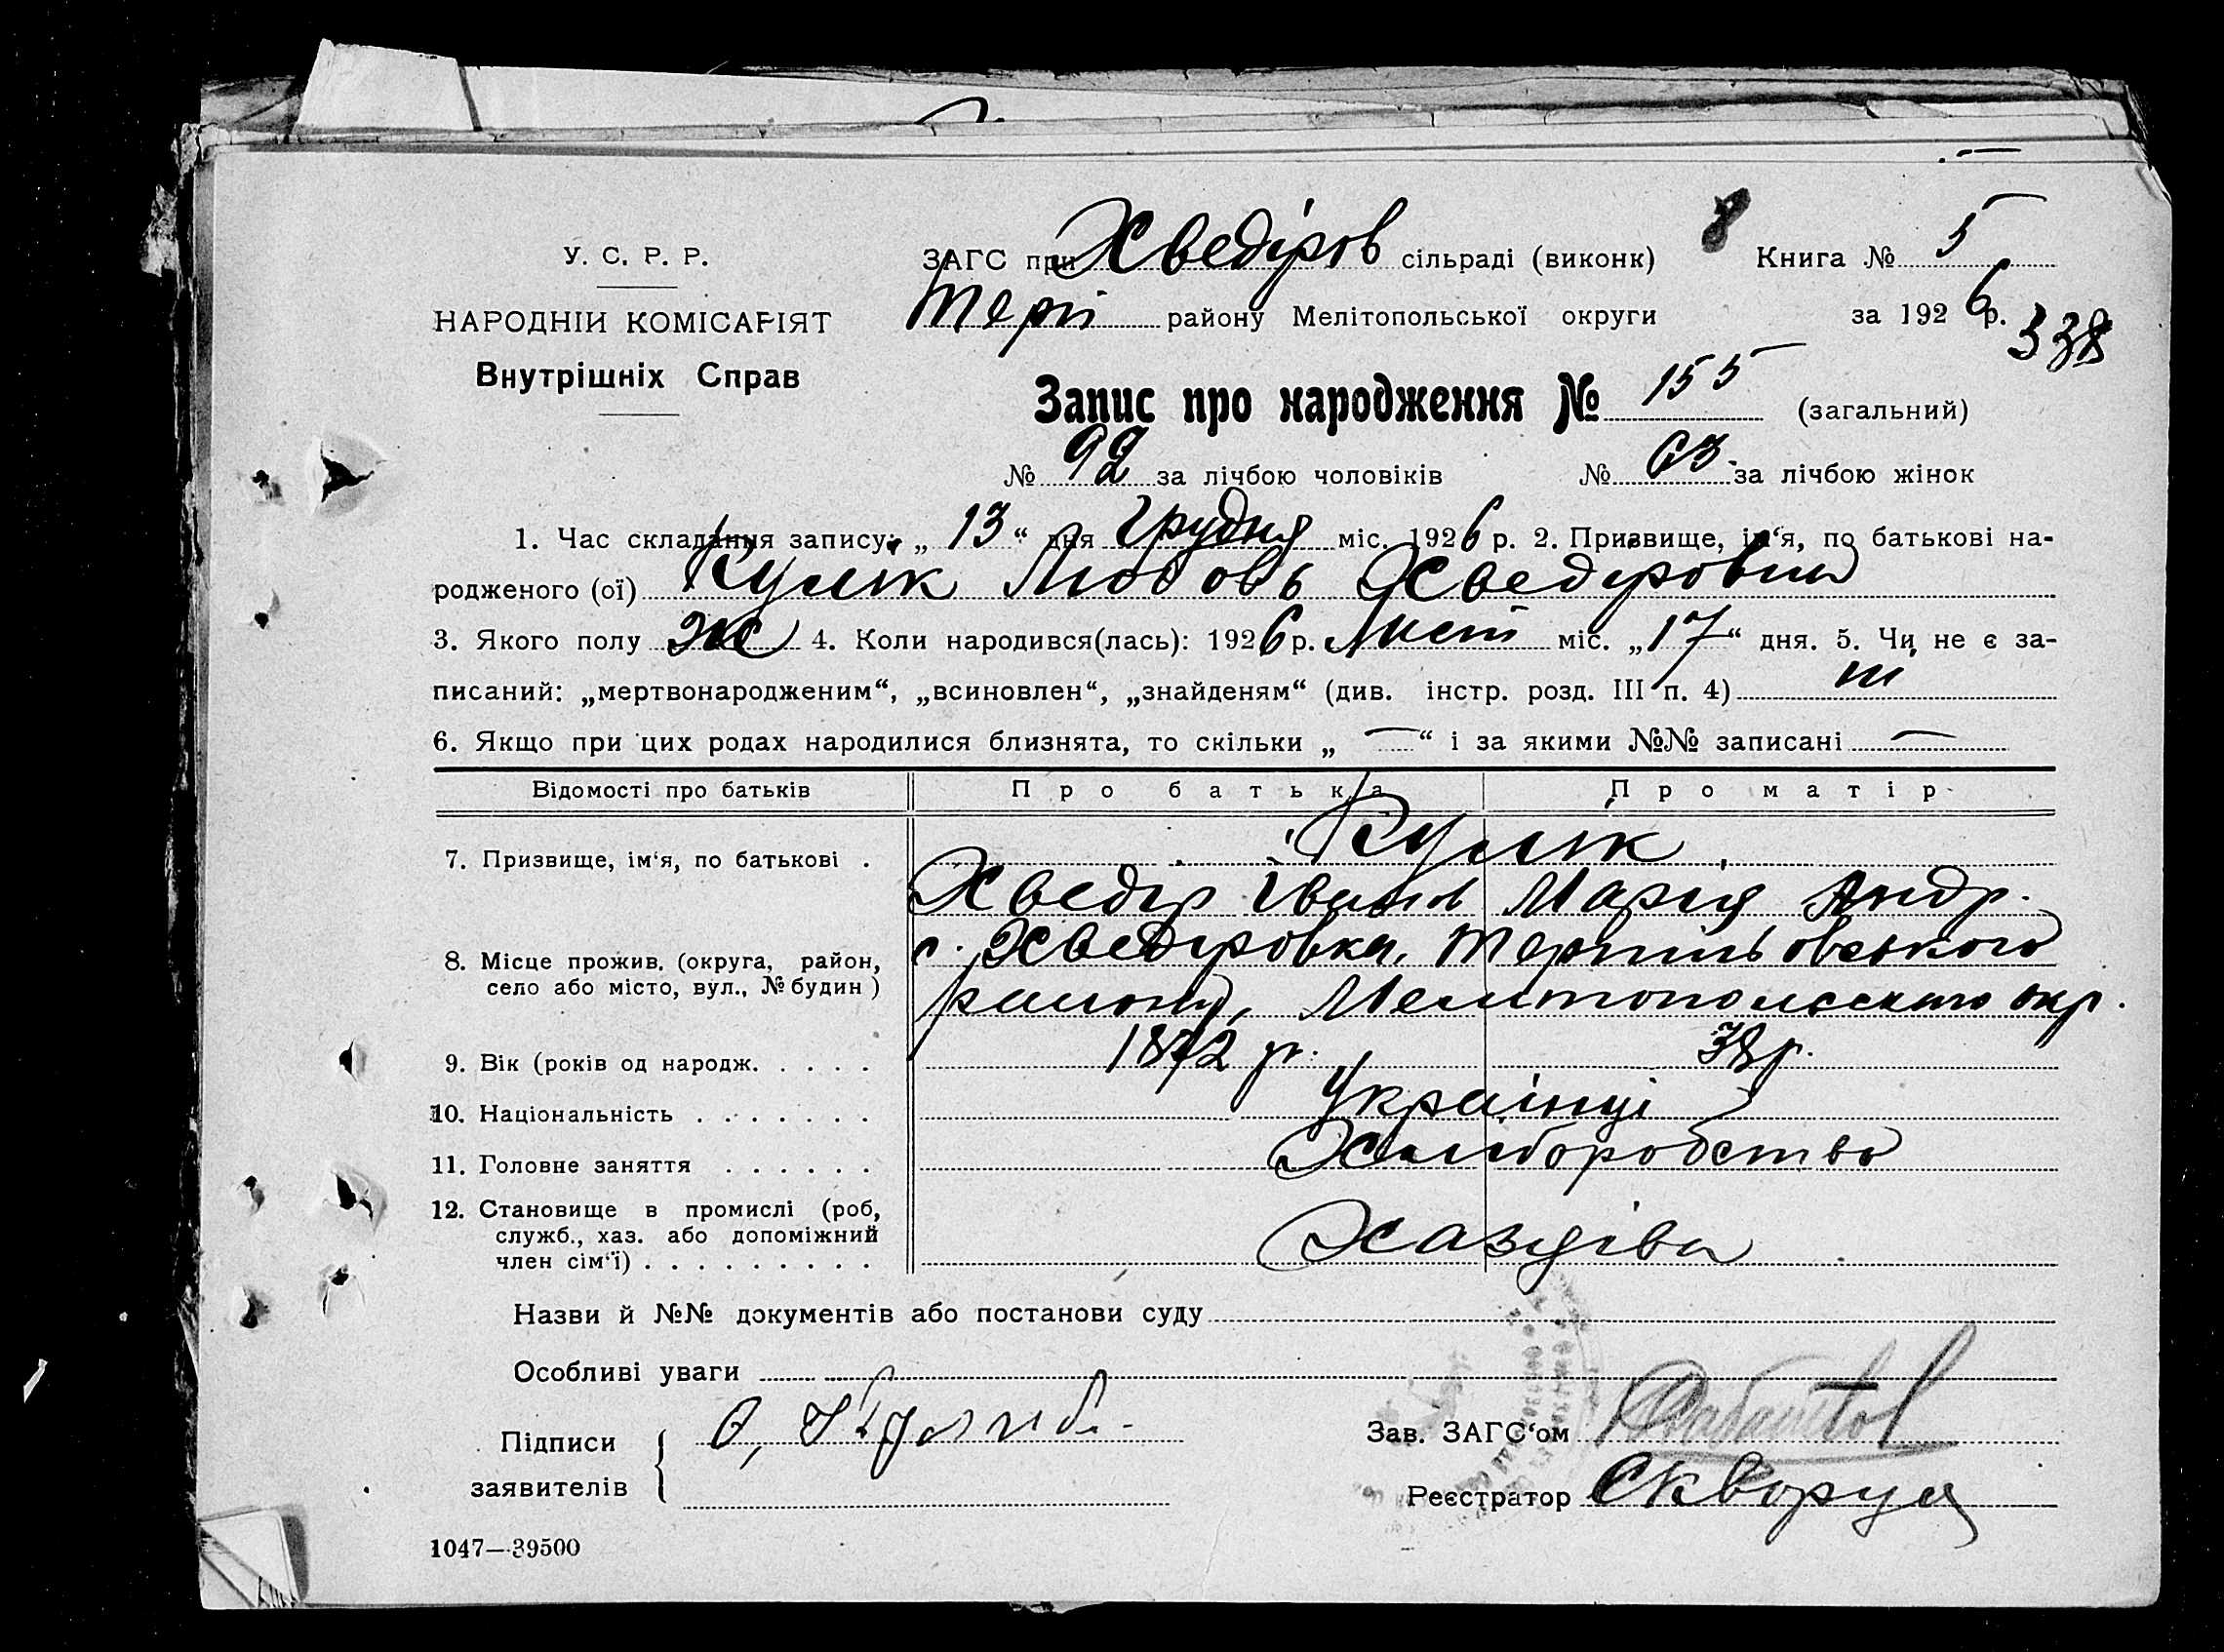 У. С. Р. Р.
НАРОДНІЙ КОМІСАРІЯТ
Внутрішніх Справ
ЗАГС при Хведіров сільраді (виконк) 8 Книга № 5
Терп району Мелітопольської округи за 1926 р.
338
Запис про народження № 155 (загальний)
№ 92 за лічбою чоловіків № 63 за лічбою жінок
1. Час складання запису: „ 13 “ дня Грудня міс. 1926 р. 2. Призвище, ім‘я, по батькові на-
родженого (ої) Кулік Любовь Хведоровна
3. Якого полу Жс 4. Коли народився(лась): 1926 р. Лист міс. „ 17 “ дня. 5. Чи не є за-
писаний: „мертвонародженим“, „всиновлен“, „знайденям“ (див. інстр. розд. III п. 4) ні
6. Якщо при цих родах народилися близнята, то скільки „ — “ і за якими №№ записані —
Відомості про батьків Про батька Про матір
7. Призвище, ім‘я, по батькові . Кулік
Хведір Іванов Марія Андр.
8. Місце прожив. (округа, район, село або місто, вул., № будин) с. Хведоровка, Терпіньовського
району, Мелітопольского окр.
9. Вік (років од народж. . . . . 1872 р. 38 р.
10. Національність . . . . . . . Українці
11. Головне заняття . . . . . . Хліборобство
12. Становище в промислі (роб, служб., хаз. або допоміжний член сім‘ї) . . . . . . . . . Хазяіва
Назви й №№ документів або постанови суду
Особливі уваги
Підписи
заявителів
Зав. ЗАГС‘ом
Реєстратор Скворця
1047—39500